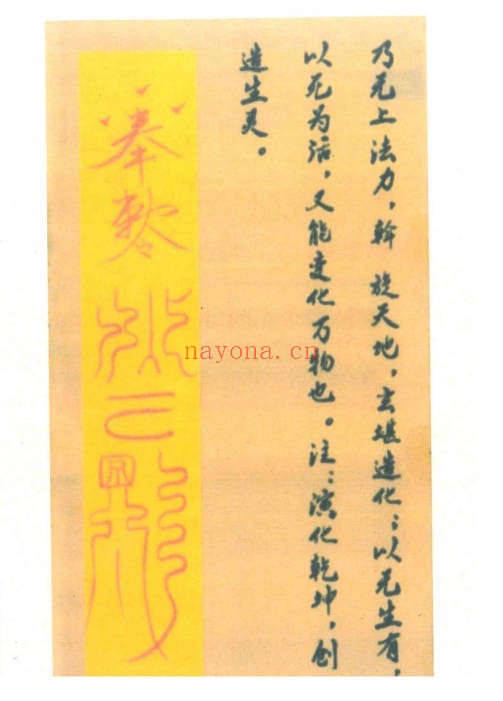 乃无上法力，斡旋天地，玄堪造化；以无生有，
以死为活，又能变化万物也。注：演化乾坤，创
造生灵。
奉敕令
nayona.cn